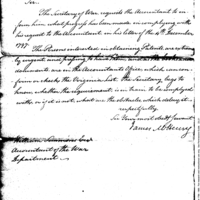 Sir.
The Secretary of War requests the Accountant to in-
form him what progress has been made in complying with
his request to the Accountant in his letter of the 19th December
1797.
The Persons interested in obtaining Patents are
urgent and
documents are in the Accountants Office which can
from or check the Virginia list. The Secretary begs to
know whether the requirement is in train to be complyed
with or if it is not, what are the obstacles which delay it
respectfully
Sir Your most obedt Servant
James McHenry
William Simmons Esqr
Accountant of the War
Department